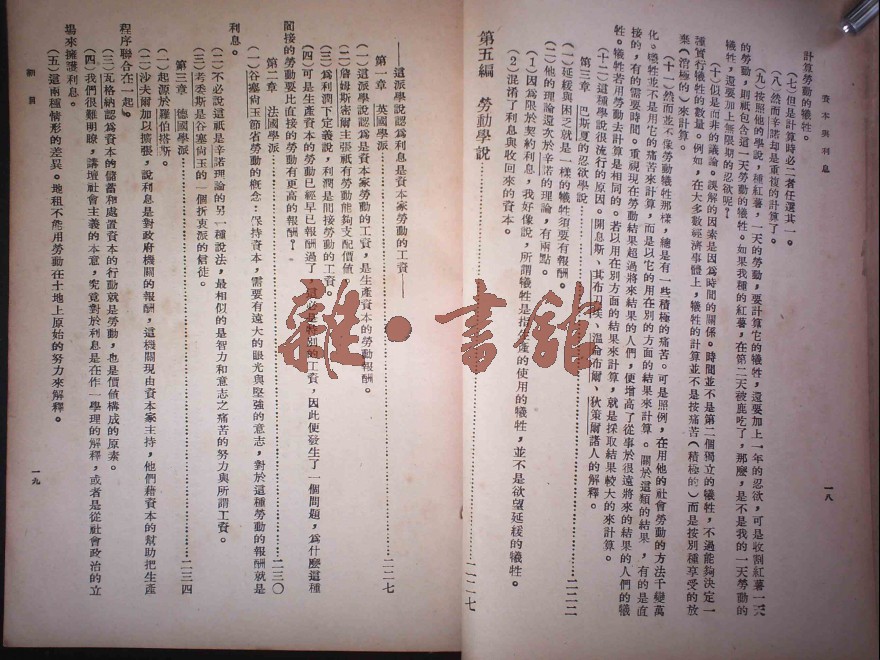 資本與利息
一八
計算勞動的犧牲。
(七)但是計算時必二者任選其一。
(八)然而辛諾却是重複的計算了。
(九)按照他的學說,種紅薯,一天的勞動,要計算它的犧牲,還要加上一年的忍欲,可是收割紅薯一天
的勞動,則祇包含這一天勞動的犧牲。如果我種的紅薯,在第二天被鹿吃了,那麼,是不是我的一天勞動的
犧牲,還要加上無限期的忍欲呢?
(十)似是而非的議論。誤解的因素是因爲時間的關係。時間並不是第二個獨立的犧牲,不過能夠決定一
種實行犧牲的數量。例如,在大多數經濟事體上,犧牲的計算並不是按痛苦(積極的)而是按別種享受的放
棄(消極的)來計算。
(十一)然而並不像勞動犧牲那樣,總是有一些積極的痛苦。可是照例,在用他的社會勞動的方法千變萬
化。犧牲並不是用它的痛苦來計算,而是以它的用在別的方面的結果來計算。關於這類的結果,有的是直
接的,有的需要時間。重視現在勞動結果超過將來結果的人們,便增高了從事於很遠將來的結果的人們的犧
牲。犧牲若用勞動去計算是相同的。若以用在別方面的結果來計算,就是採取結果較大的來計算。
(十二)這種學說很流行的原因。開息斯、其布 埃、溫侖布爾、狄策爾諸人的解釋。
第三章 巴斯夏的忍欲學說……二二二
(一)延緩與困乏就是一樣的犧牲須要有報酬。
(二)他的理論還次於辛諾的理論,有兩點。
(1)因爲限於契約利息,我好像說,所謂犧牲是指生產的使用的犧牲,並不是欲望延緩的犧牲。
(2)混淆了利息與收回來的資本。
第五編 勞動學說……二二七
——這派學說認爲利息是資本家勞動的工資——
第一章 英國學派……二二七
(一)這派學說認爲利潤是資本家勞動的工資,是生產資本的勞動報酬。
(二)詹姆斯密爾主張祇有勞動能夠支配價値。
(三)爲利潤下定義說,利潤是間接勞動的工資。
(四)可是生產資本的勞動已經早已報酬過了, 必是特別的工資,因此便發生了一個問題,爲什麼這種
間接的勞動要比直接的勞動有更高的報酬?
第二章 法國學派……二三〇
(一)谷塞尙玉節省勞動的槪念:保持資本,需要有遠大的眼光與堅強的意志,對於這種勞動的報酬就是
利息。
(二)不必說這祇是辛諾理論的另一種說法,最相似的是智力和意志之痛苦的努力與所謂工資。
(三)考委斯是谷塞尙玉的一個折衷派的信徒。
第三章 德國學派……二三四
(一)起源於羅伯塔斯。
(二)沙夫爾加以擴張,說利息是對政府機關的報酬,這機關現由資本家主持,他們藉資本的幫助把生產
程序聯合在一起。
(三)瓦格納認爲資本的儲蓄和處置資本的行動就是勞動,也是價値構成的原素。
(四)我們很難明瞭,講壇社會主義的本意,究竟對於利息是在作一學理的解釋,或者是從社會政治的立
場來擁護利息。
(五)這兩種情形的差異。地租不能用勞動在土地上原始的努力來解釋。
細目
一九
雜·書館